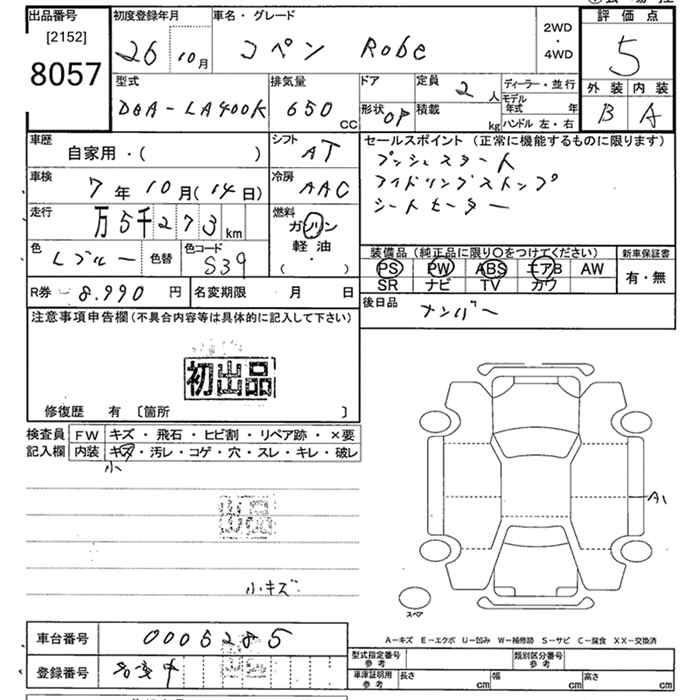 出品番号 初度登録年月 車名・グレード 評価点
[2152] 26 10月 コペン Robe 2WD・4WD 5
8057
型式 排気量 ドア 定員 2人 ディーラー・並行 外装 内装
DBA-LA400K 650CC 形状 OP 積載 kg モデル年式 年 ハンドル 左・右 B A
車歴 自家用・( ) シフト AT セールスポイント (正常に機能するものに限ります)
プッシュスタート
車検 7年10月(14日) 冷房 AAC アイドリングストップ
シートヒーター
走行 万5千273km 燃料 ガソリン
軽油・( )
色 Lブルー 色替 色コード S39
装備品 (純正品に限り〇をつけてください) 新車保証書
PS PW ABS エアB AW 有・無
SR ナビ TV カワ
R券 8.990円 名変期限 月 日 後日品 ナンバー
注意事項申告欄(不具合内容等は具体的に記入して下さい)
初出品
修復歴 有 〔箇所 〕
検査員 FW キズ・飛石・ヒビ割・リペア跡・×要
記入欄 内装 キズ・汚レ・コゲ・穴・スレ・キレ・破レ
小
A1
出品
小キズ
スペア
A-キズ E-エクボ U-凹み W-補修跡 S-サビ C-腐食 XX-交換済
車台番号 0005285
型式指定番号 参考 類別区分番号 参考
登録番号
車庫証明用 参考 長さ cm 幅 cm 高さ cm